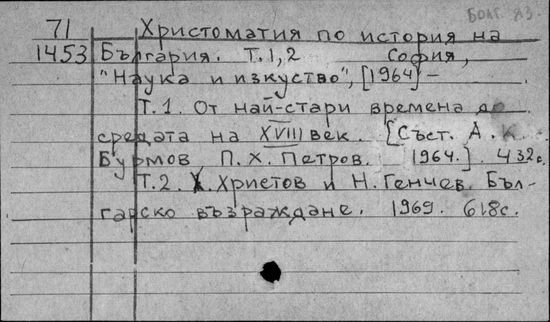 БОЛГ. ЯЗ.
71 Христоматия по история на
1453 България. Т.1,2 София,
"Наука и изкуство", [1964]-
Т.1. От най-стари времена до
средата на XVIII век. [Съст. А.К.
Бурмов, П.Х. Петров. 1964.]. 432с.
Т.2. Х. Христов и Н. Генчев. Бъл-
гарско възраждане. 1969. 618с.